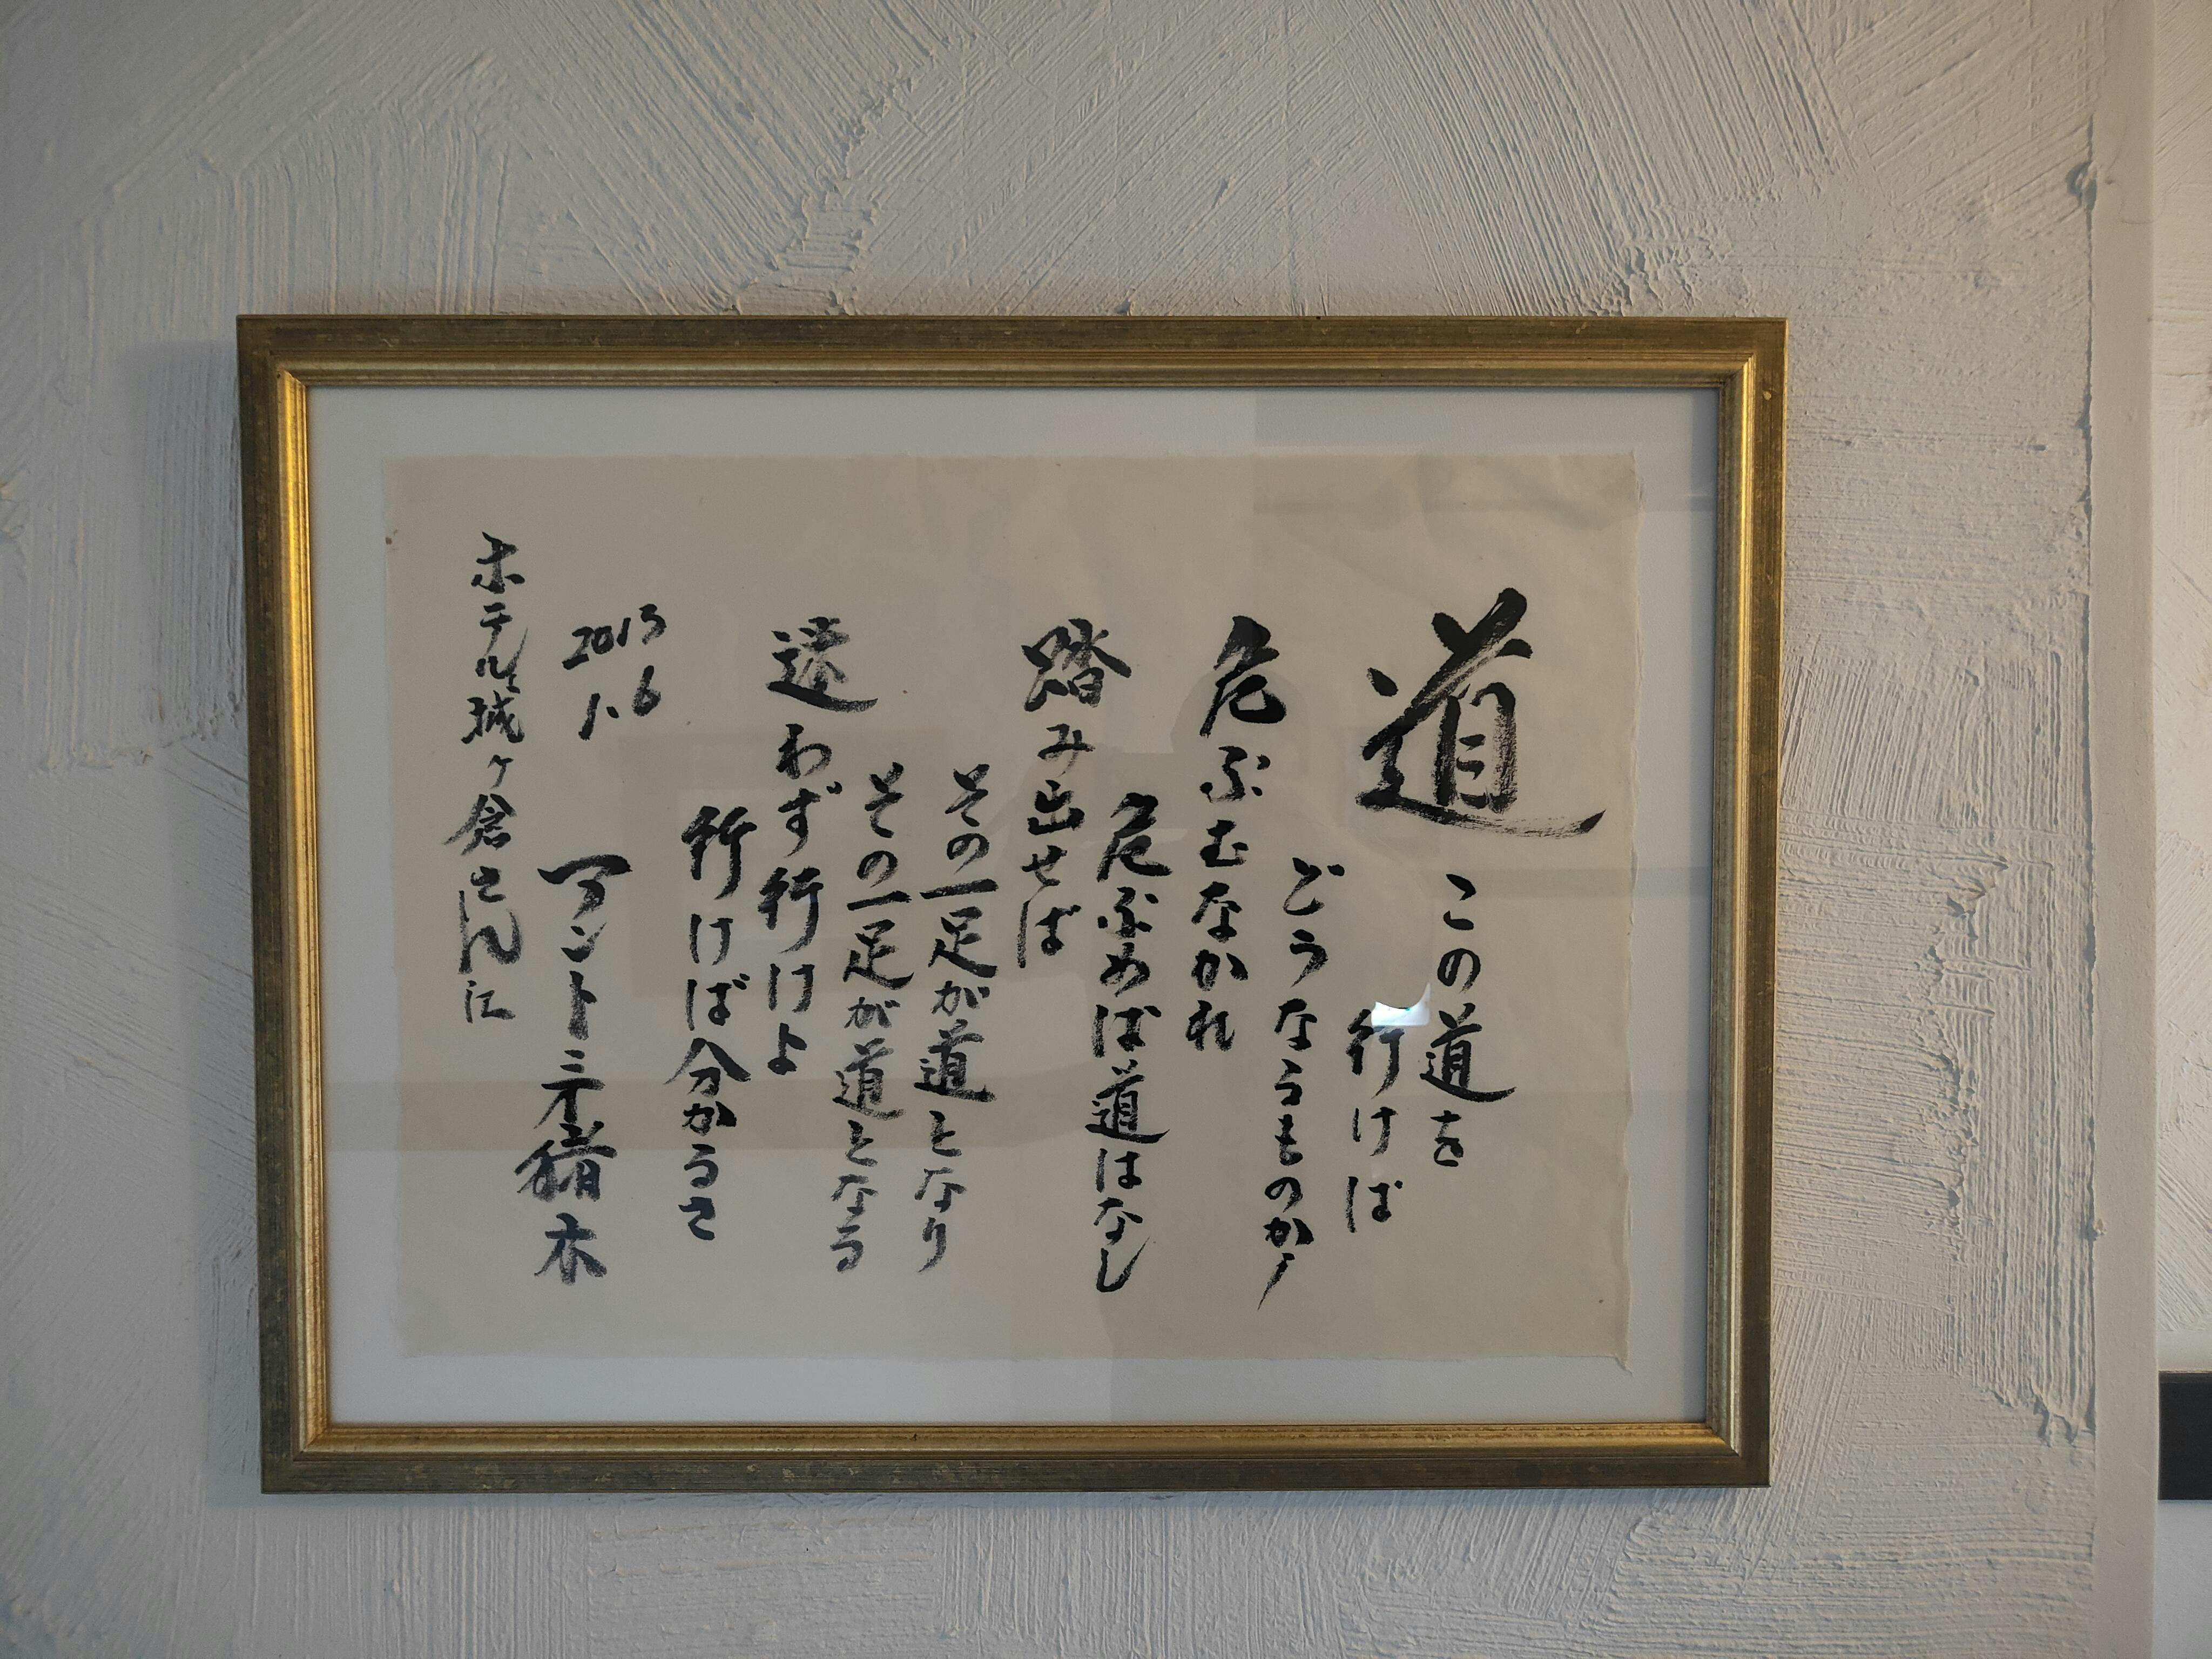 道
この道を
行けば
どうなるものか、
危ぶむなかれ
危ぶめば道はなし
踏み出せば
その一足が道となり
その一足が道となる
迷わず行けよ
行けば分かるさ
2013
1.6
アントニオ猪木
ホテル城ヶ倉さんに